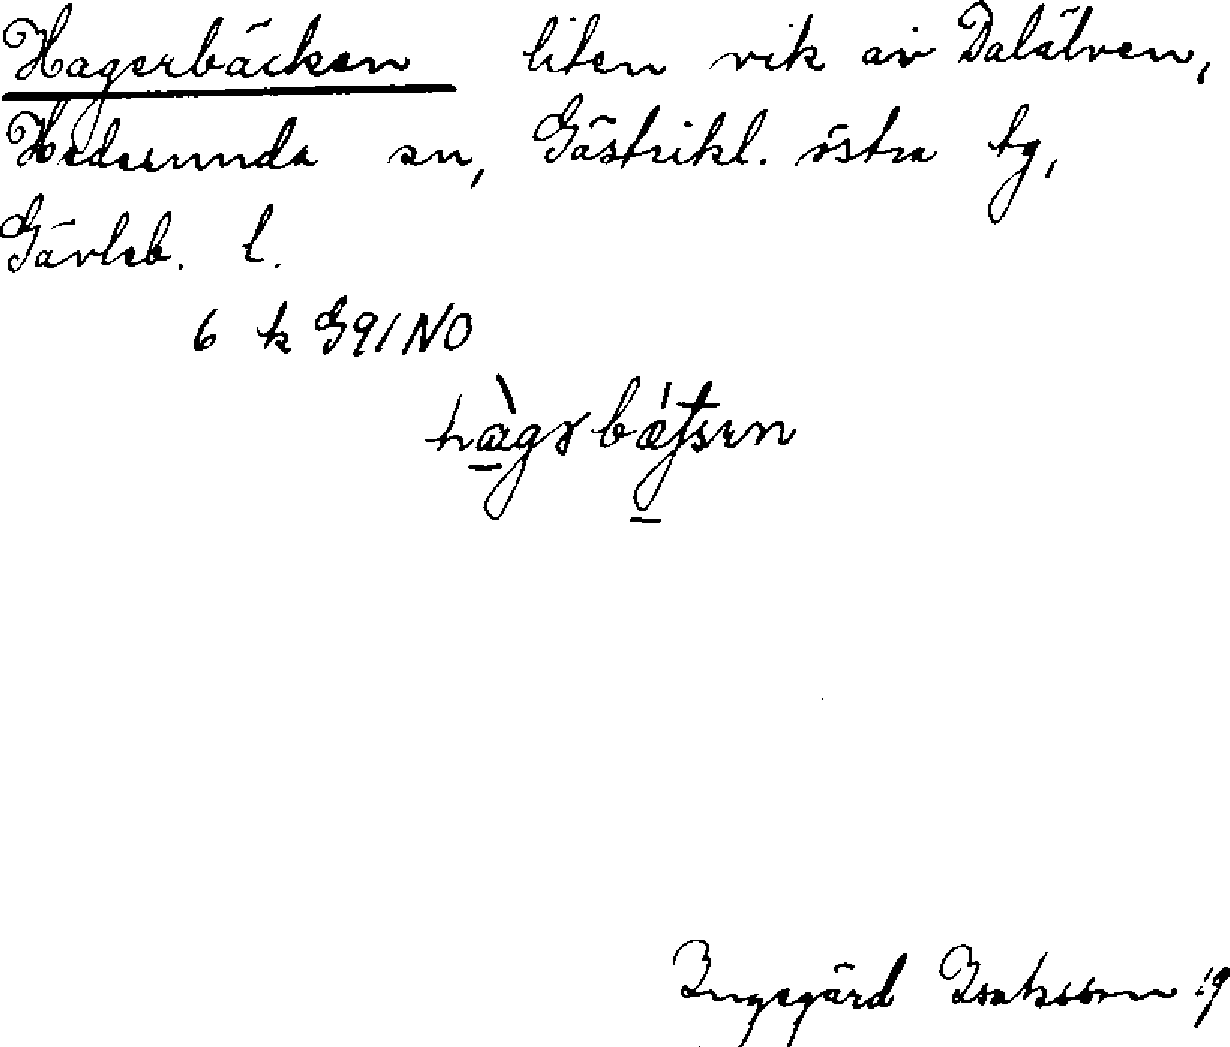 Hagerbäcken liten vik av Dalälven,
Hedesunda sn, Gästrikl. östra tg,
Gävleb. l.
6 k G91NO
Ingegärd Isaksson 19